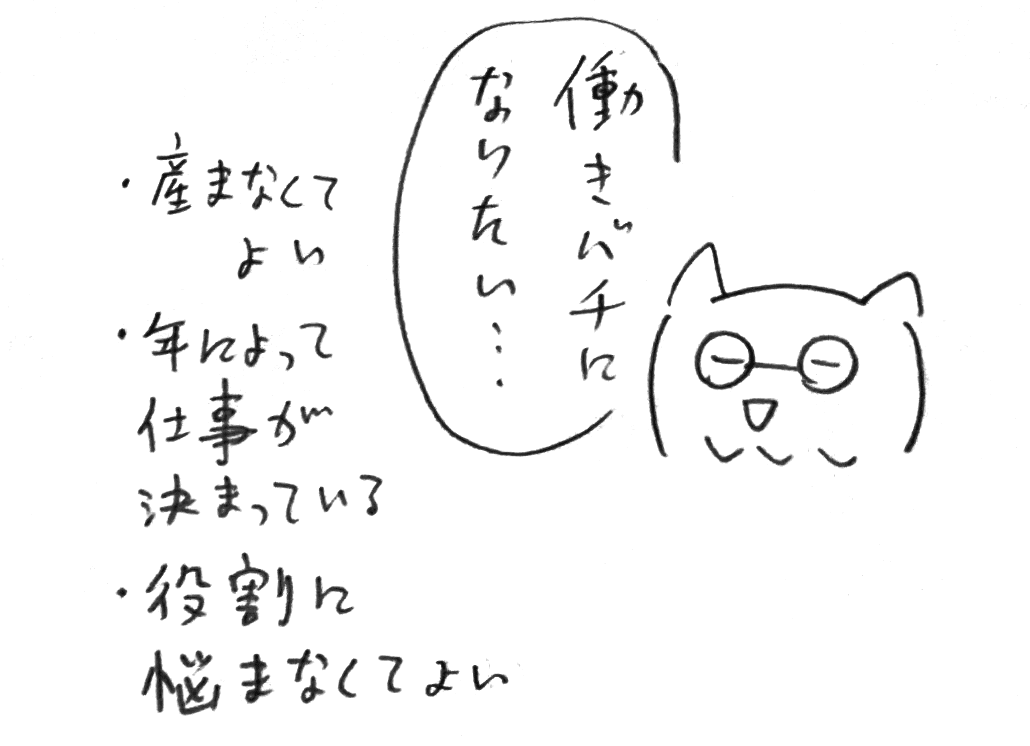 働きバチに
なりたい…
・産まなくて
よい
・年によって
仕事が
決まっている
・役割に
悩まなくてよい